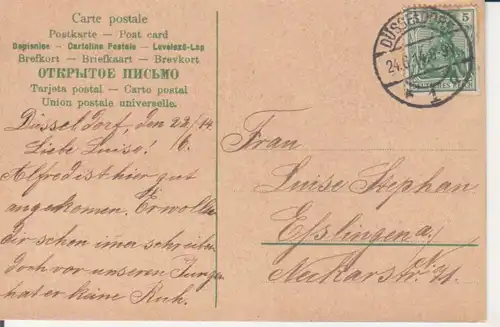 Carte postale
Postkarte — Post card
Dopisnice — Cartolina Postale — Levelező-Lap
Brefkort — Briefkaart — Brevkort
ОТКРЫТОЕ ПИСЬМО
Tarjeta postal — Carto postal
Union postale universelle.
DÜSSELDORF
24.6.14
* 1
5
DEUTSCHES REICH
Düsseldorf, den 23/14.
6.
Liebe Luise!
Alfred ist hier gut
angekommen. Er wollte
dir schon imer schreiben
doch vor unseren Jungen
hat er keine Ruh.
Frau
Luise Stephan
Esslingen a/
Neckarstr. N.